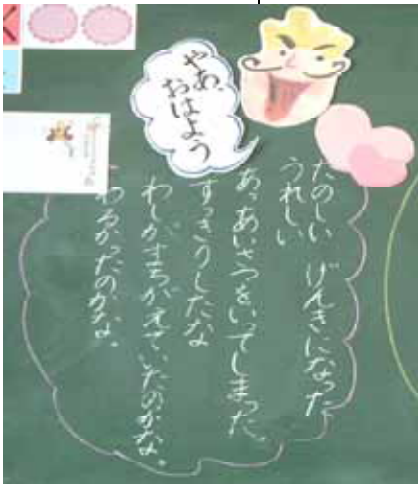 やあ、
おはよう
たのしい げんきになった
うれしい
あ、あいさつをいってしまった。
すっきりしたな
わしがまちがえていたのかな。
わるかったのかな。